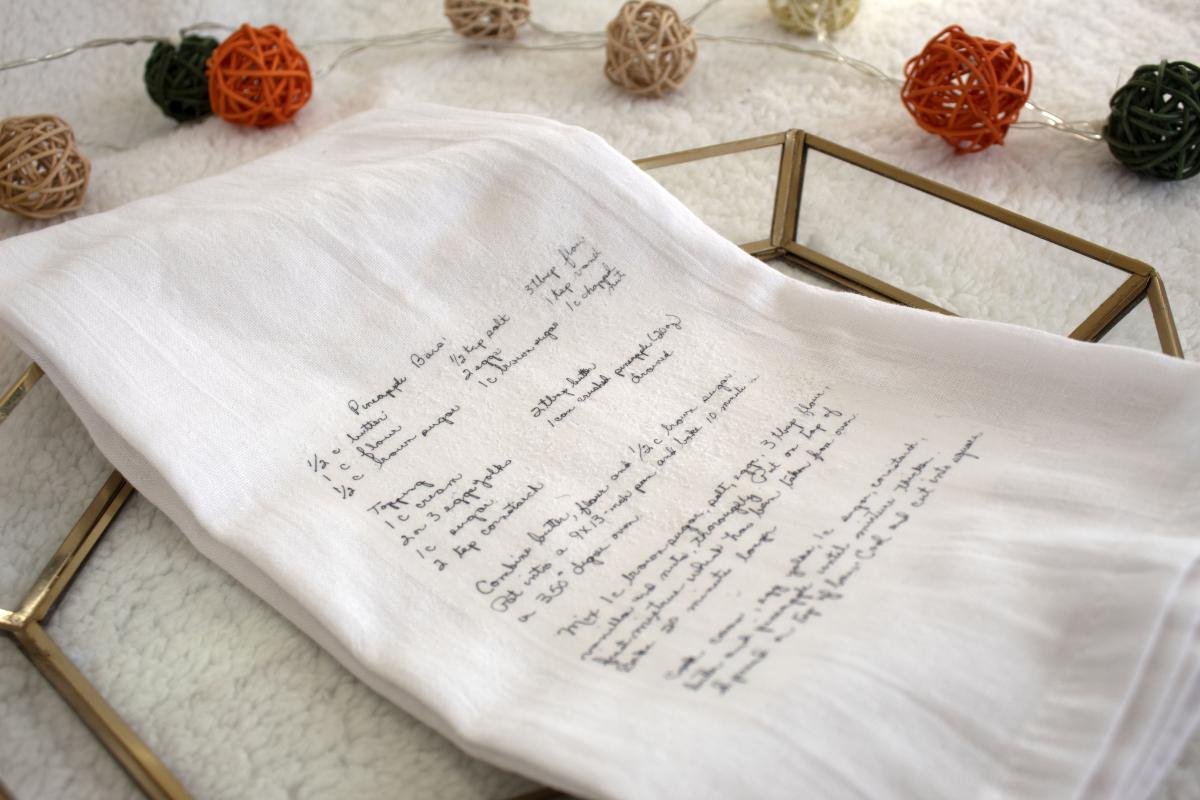 Pineapple Bars
1/2 c butter 1/2 tsp salt 3 tbsp flour
1 c flour 2 eggs 1 tsp vanil
1/2 c brown sugar 1c brown sugar 1c chopped
nut
Topping
1 c cream 2 tbsp butter
2 or 3 egg yolks 1 can crushed pineapple (20oz)
1c sugar drained
2 tsp cornstarch
Combine butter, flour and 1/2 c brown sugar.
Pat into a 9x13 inch pan and bake 10 minutes in
a 350° degree oven
Mix 1c brown sugar, salt, eggs, 3 tbsp flour,
vanilla and nuts, thoroughly. Put on top of
first mixture which has been taken from oven
Bake 30 minutes longer
Cook cream, egg yolks, 1c sugar, cornstarch,
butter and pineapple until mixture thickens.
Spread on top of bars. Cool and cut into squares